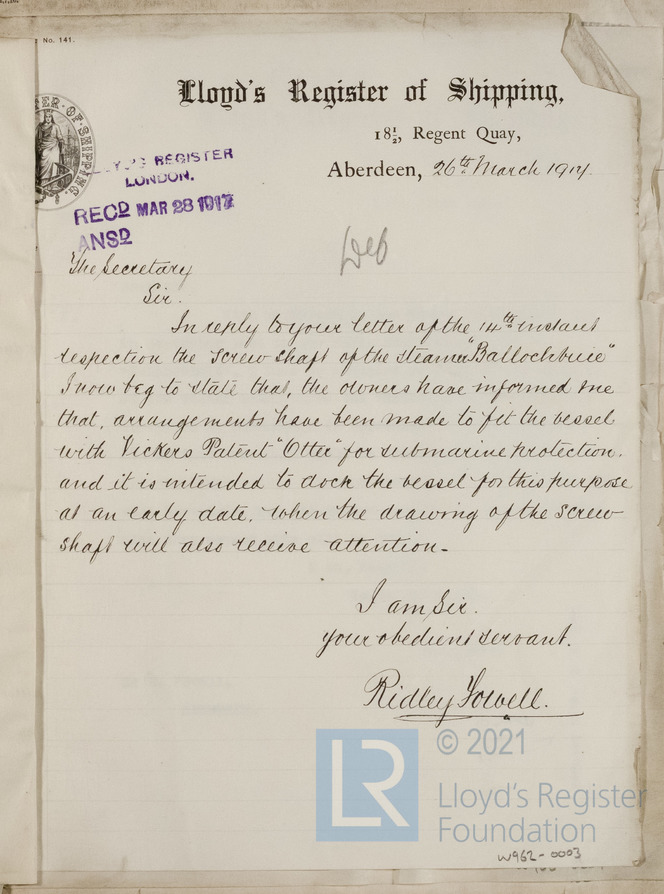 No. 141.
Lloyd's Register of Shipping,
18½, Regent Quay,
Aberdeen, 26th March 1917.
REGISTER
LONDON.
RECD MAR 28 1917
ANSD
The Secretary
Sir.
In reply to your letter of the 14th instant
respection the screw shaft of the steamer "Ballochbuie"
I now beg to state that, the owners have informed me
that, arrangements have been made to fit the vessel
with Vickers Patent "Otter" for submarine protection.
and it is intended to dock the vessel for this purpose
at an early date. when the drawing of the screw
shaft will also receive attention.
I am Sir.
your obedient servant.
Ridley Towell.
LR
© 2021
Lloyd's Register
Foundation
W962-0003